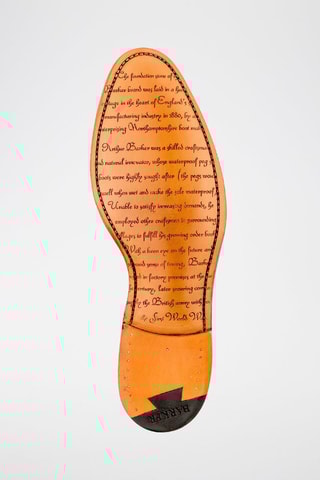 The foundation stone of
Barker brand was laid in a
village in the heart of England's
manufacturing industry in 1880, by an
enterprising Northamptonshire boot maker.
Arthur Barker was a skilled craftsman
and natural innovator, whose waterproof peg
boots were highly sought after (the pegs would
swell when wet and make the sole waterproof).
Unable to satisfy increasing demands, he
employed other craftsmen in surrounding
villages to fulfill his growing order book.
With a keen eye on the future and
sound sense of timing, Barker
built in factory premises at the
century, later securing
the British army
the First World War
BARKER